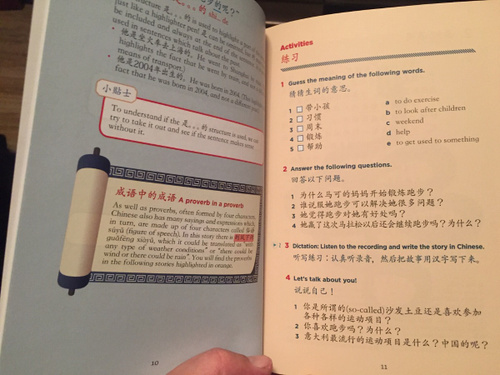 是...的 shì...de
structure 是...的 is used to highlight a part of
just like a highlighter pen! 是 can be omitted
be included and always at the end of the sentence.
used in sentences which talk about the past.
他是坐火车去上海的。He went to Shanghai by
highlights the fact that he went by train and not
means of transport.)
他是2004年出生的。He was born in 2004. (This
fact that he was born in 2004, and not a different
小贴士
To understand if the 是...的 structure is used,
try to take it out and see if the sentence makes sense
without it.
成语中的成语 A proverb in a proverb
As well as proverbs, often formed by four characters,
Chinese also has many sayings and expressions which,
in turn, are made up of four characters called 俗语
súyǔ (figure of speech). In this story there is
guāfēng xiàyǔ, which it could be translated as "with
any type of weather conditions" or "there could be
wind or there could be rain". You will find the proverbs
in the following stories highlighted in orange.
10
Activities
练习
1 Guess the meaning of the following words.
猜猜生词的意思。
1 带小孩 a to do exercise
2 习惯 b to look after children
3 周末 c weekend
4 锻炼 d help
5 帮助 e to get used to something
2 Answer the following questions.
回答以下问题。
1 为什么马可的妈妈开始锻炼跑步？
2 谁说服她跑步可以解决她很多问题？
3 她觉得跑步对她有好处吗？
4 她赢了这次马拉松以后还会继续跑步吗？为什么？
3 Dictation: Listen to the recording and write the story in Chinese.
听写练习：认真听录音，然后把故事用汉字写下来。
4 Let's talk about you!
说说自己！
1 你是所谓的(so-called)沙发土豆还是喜欢参加
各种各样的运动项目？
2 你喜欢跑步吗？为什么？
3 意大利最流行的运动项目是什么？中国的呢？
11